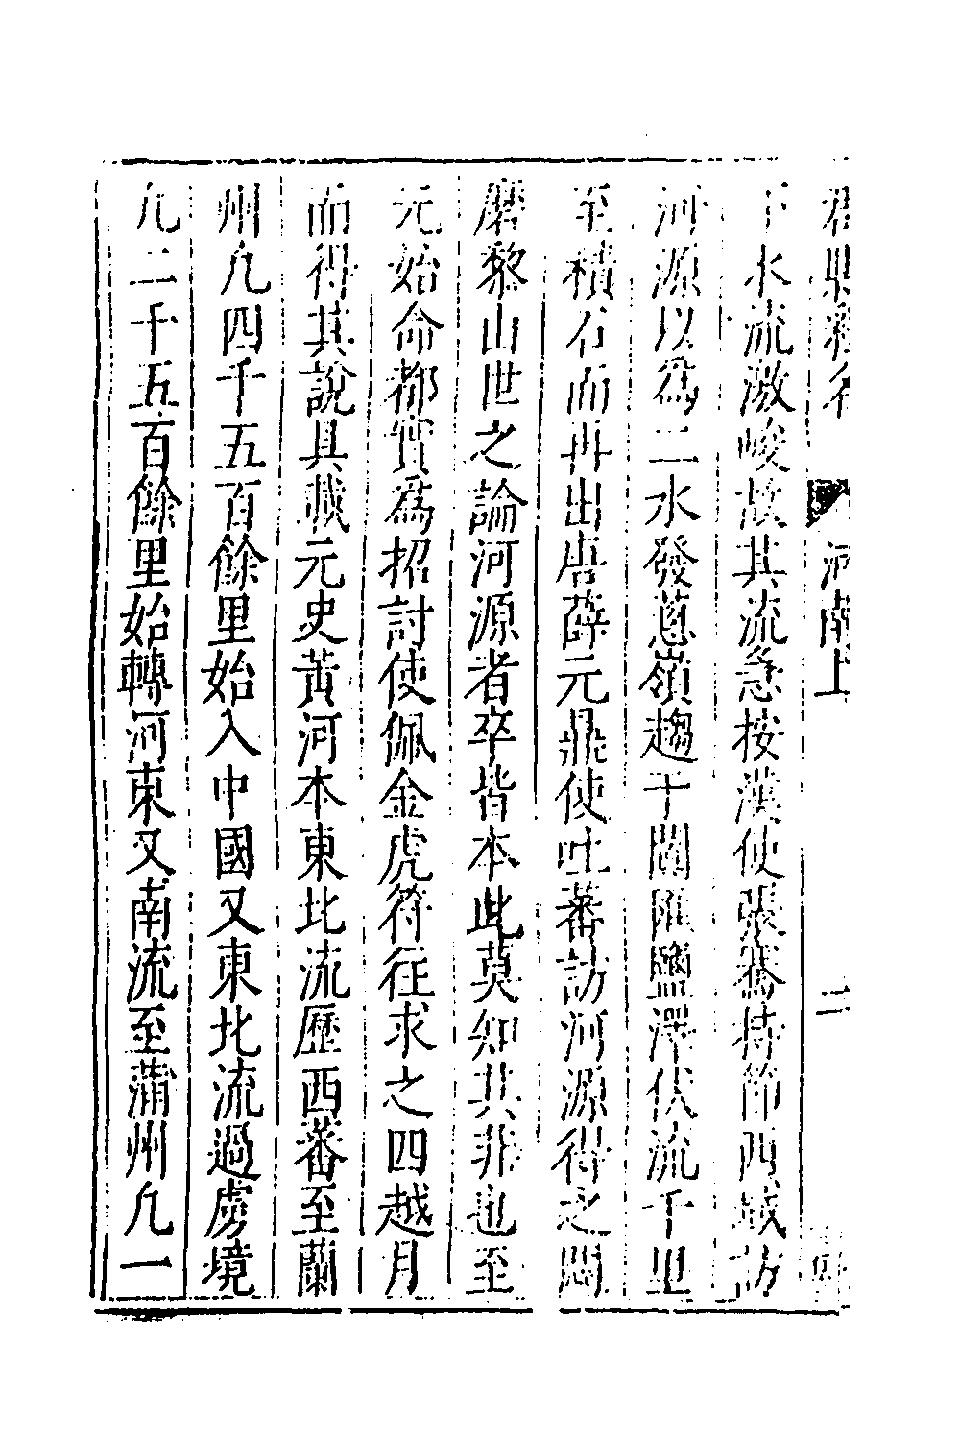 郡縣釋名 河南上 二
下水流激峻故其流急按漢使張騫持節西域訪
河源以爲二水發蔥嶺趨于闐匯鹽澤伏流千里
至積石而再出唐薛元鼎使吐蕃訪河源得之悶
磨黎山世之論河源者卒皆本此莫知其非也至
元始命都實爲招討使佩金虎符往求之四越月
而得其說具載元史黃河本東北流歷西蕃至蘭
州凡四千五百餘里始入中國又東北流過虜境
凡二千五百餘里始轉河東又南流至蒲州凡一